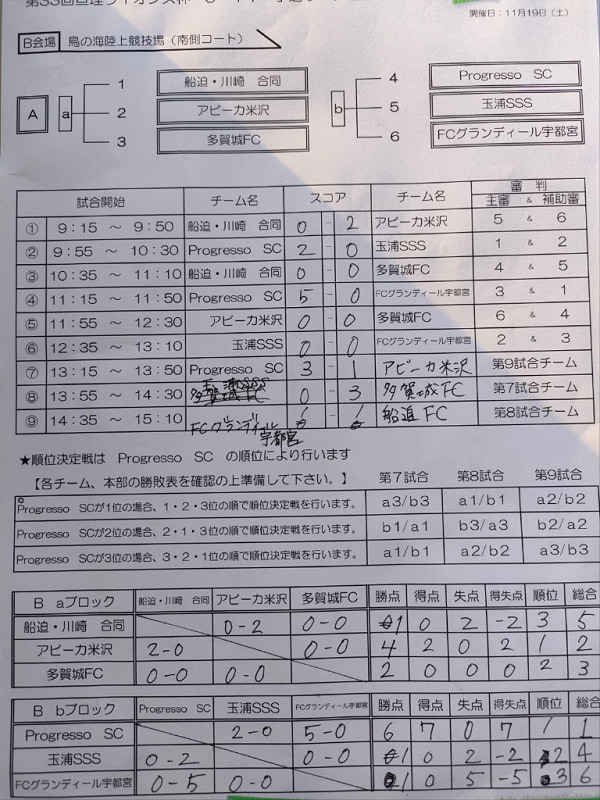 開催日：11月19日（土）
B会場 鳥の海陸上競技場（南側コート）
A a
1 船迫・川崎 合同
2 アビーカ米沢
3 多賀城FC
b
4 Progresso SC
5 玉浦SSS
6 FCグランディール宇都宮
試合開始 チーム名 スコア チーム名 審判
主審 & 補助審
① 9：15 ～ 9：50 船迫・川崎 合同 0 - 2 アビーカ米沢 5 & 6
② 9：55 ～ 10：30 Progresso SC 2 - 0 玉浦SSS 1 & 2
③ 10：35 ～ 11：10 船迫・川崎 合同 0 - 0 多賀城FC 4 & 5
④ 11：15 ～ 11：50 Progresso SC 5 - 0 FCグランディール宇都宮 3 & 1
⑤ 11：55 ～ 12：30 アビーカ米沢 0 - 0 多賀城FC 6 & 4
⑥ 12：35 ～ 13：10 玉浦SSS 0 - 0 FCグランディール宇都宮 2 & 3
⑦ 13：15 ～ 13：50 Progresso SC 3 - 1 アビーカ米沢 第9試合チーム
⑧ 13：55 ～ 14：30 玉浦SSS 0 - 3 多賀城FC 第7試合チーム
⑨ 14：35 ～ 15：10 FCグランディール宇都宮 船迫FC 第8試合チーム
★順位決定戦は Progresso SC の順位により行います
【各チーム、本部の勝敗表を確認の上準備して下さい。】 第7試合 第8試合 第9試合
Progresso SCが1位の場合、1・2・3位の順で順位決定戦を行います。 a3/b3 a1/b1 a2/b2
Progresso SCが2位の場合、2・1・3位の順で順位決定戦を行います。 b1/a1 b3/a3 b2/a2
Progresso SCが3位の場合、3・2・1位の順で順位決定戦を行います。 a1/b1 a2/b2 a3/b3
B aブロック 船迫・川崎 合同 アビーカ米沢 多賀城FC 勝点 得点 失点 得失点 順位 総合
船迫・川崎 合同 0-2 0-0 1 0 2 -2 3 5
アビーカ米沢 2-0 0-0 4 2 0 2 1 2
多賀城FC 0-0 0-0 2 0 0 0 2 3
B bブロック Progresso SC 玉浦SSS FCグランディール宇都宮 勝点 得点 失点 得失点 順位 総合
Progresso SC 2-0 5-0 6 7 0 7 1 1
玉浦SSS 0-2 0-0 1 0 2 -2 2 4
FCグランディール宇都宮 0-5 0-0 1 0 5 -5 3 6